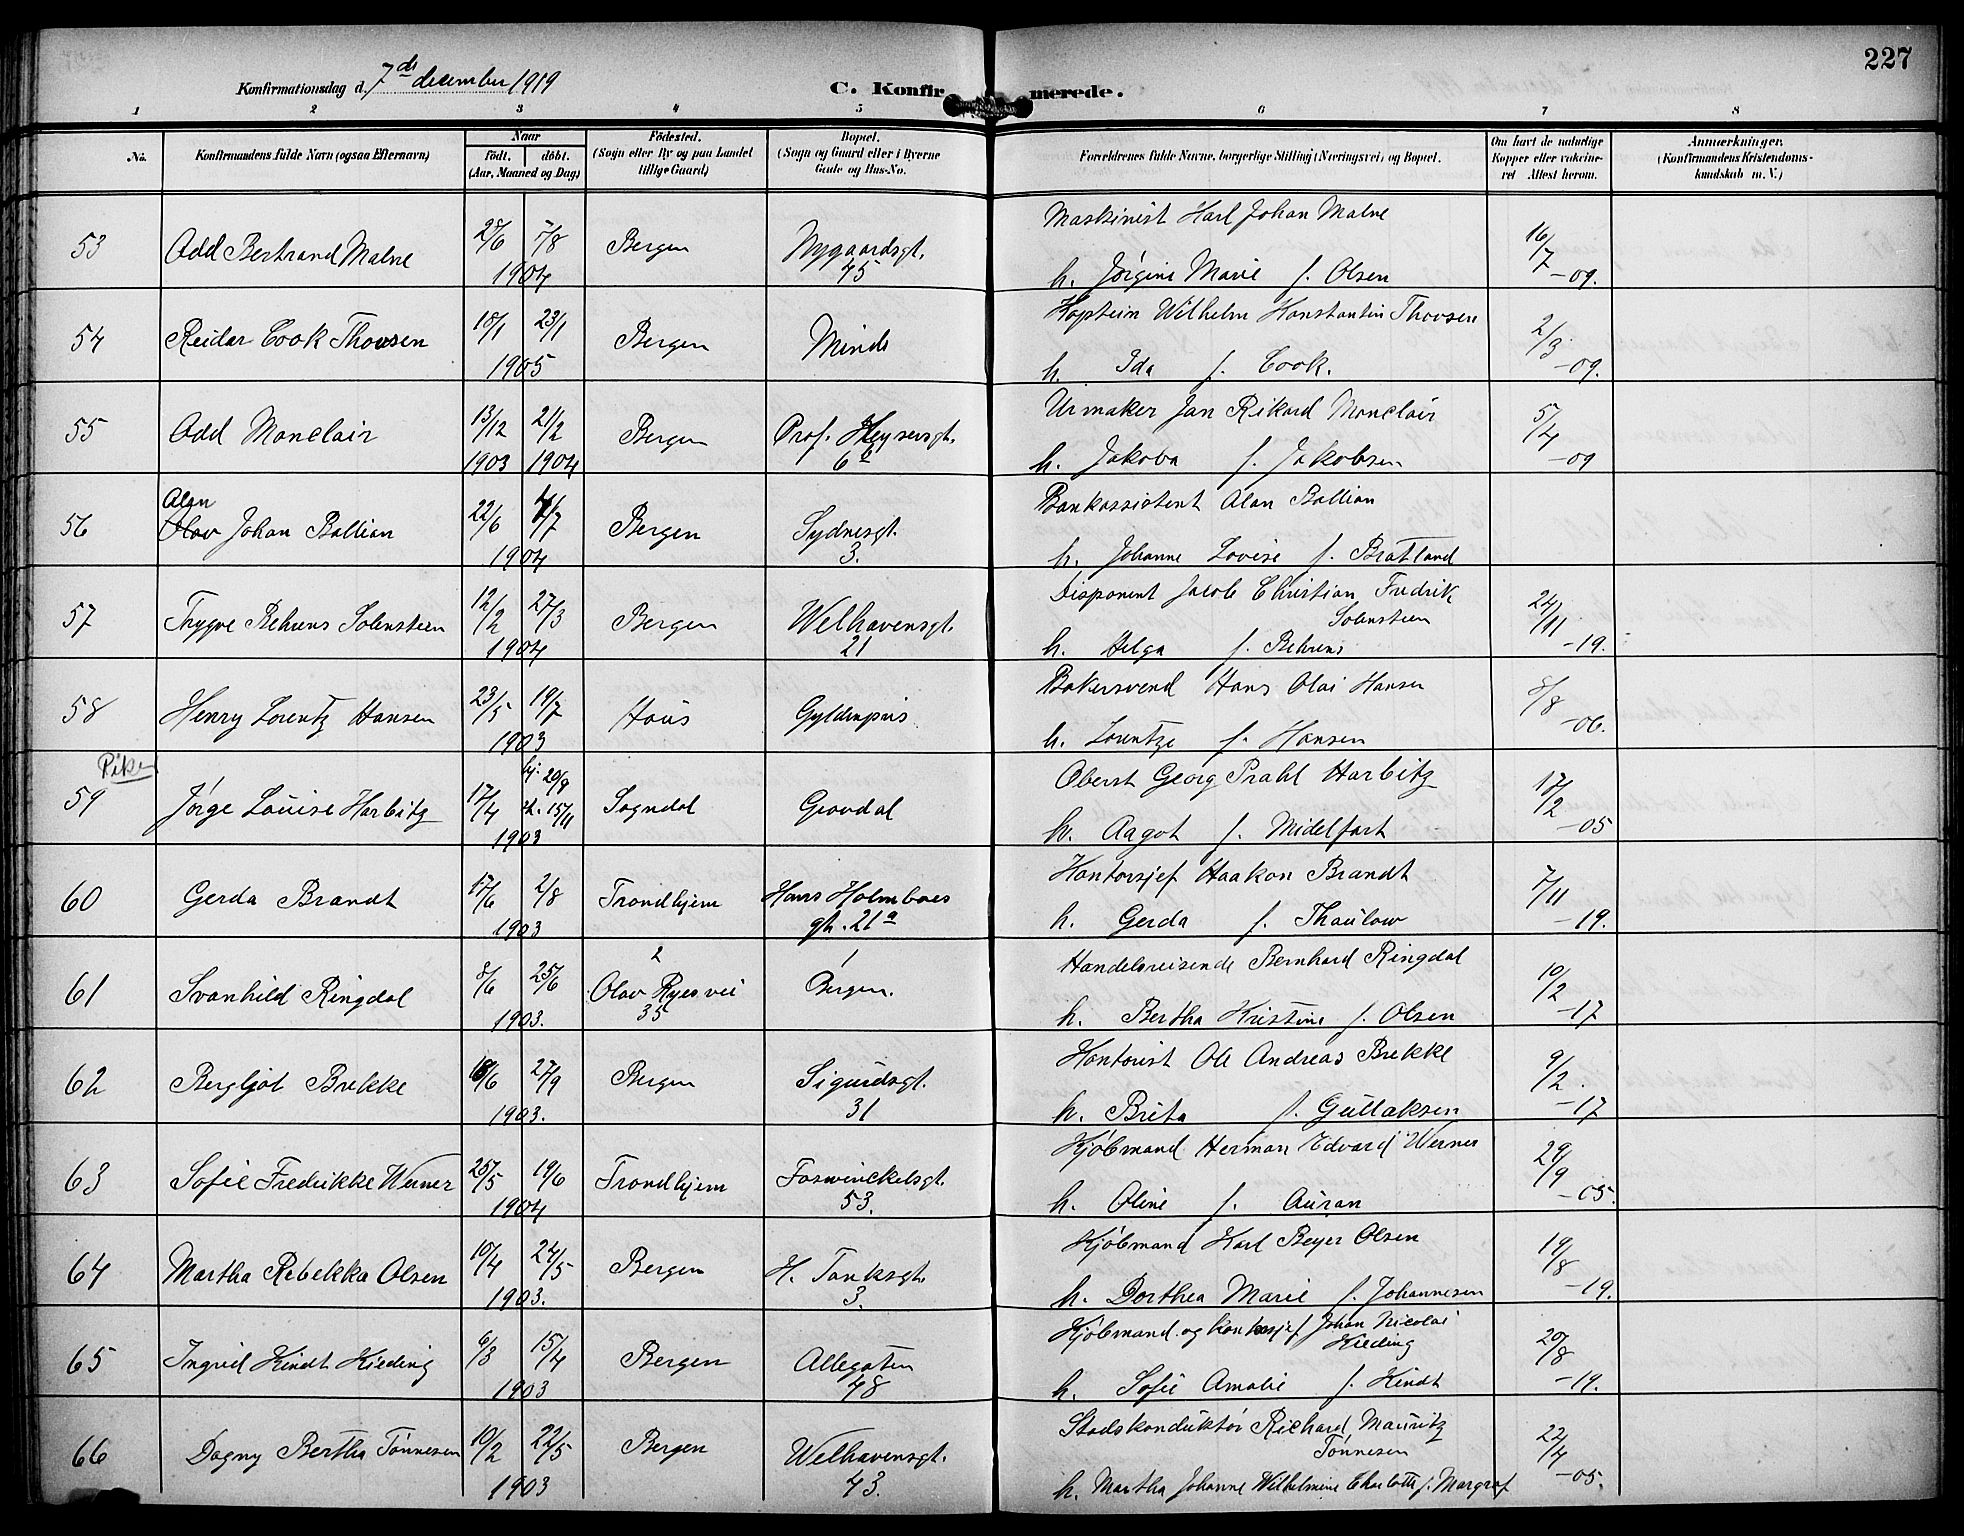 227
Konfirmationsdag d. 7de december 1919
C. Konfirmerede.
1 2 3 4 5 6 7 8
No.
Konfirmandens fulde Navn (ogsaa Efternavn)
Naar
födt. döbt.
(Aar, Maaned og Dag)
Födested.
(Sogn eller By og paa Landet
tillige Gaard)
Bopæl.
(Sogn og Gaard eller i Byerne
Gade og Hus-No.
Forældrenes fulde Navne, borgerlige Stilling (Næringsvei) og Bopæl.
Om havt de naturlige
Kopper eller vakcine-
ret Attest herom.
Anmærkninger.
(Konfirmandens Kristendoms-
kundskab m. V.)
Maskinist Karl Johan Malne
53 Odd Bertrand Malne 27/6 7/8 Bergen Nygaardsgt. 16/7
1904 45 h. Jørgine Marie f. Olsen -09.
Kaptein Wilhelm Konstantin Thovsen
54 Reidar Cook Thovsen 18/1 23/1 Bergen Minde 2/3
1905 h. Ida f. Cook. -09.
Urmaker Jan Rikard Monclair
55 Odd Monclair 13/12 21/2 Bergen Prof. Heyersgt. 5/4
1903 1904 6b h. Jakova f. Jakobsen -09
Alan
Bankassistent Alan Ballian
56 Olav Johan Ballian 22/6 /7 Bergen Sydnesgt.
1904 3. h. Johanne Lovise f. Bratland
Disponent Jacob Christian Fredrik
Solensteen
57 Thygve Behrens Solensteen 12/2 27/3 Bergen Welhavensgt. 24/11
1904 21 h. Helga f. Behrens -19.
Bakersvend Hans Olai Hansen
58 Henry Lorentz Hansen 23/5 19/7 Haus Gyldenpris 8/8
1903 h. Lorentze f. Hansen -06.
Piker.
Oberst Georg Prahl Harbitz
hj. 20/9
59 Jørge Louise Harbitz 17/4 k. 15/11 Sogndal Grovdal 18/2
1903 h. Aagot f. Midelfart -05
Kontorsjef Haakon Brandt
60 Gerda Brandt 17/6 2/8 Trondhjem Hans Holmboes 7/11
1903 gt. 21a h. Gerda f. Thaulow -19.
2 1
Handelsreisende Bernhard Ringdal
61 Svanhild Ringdal 8/6 25/6 Olav Ryes vei Bergen. 10/2
1903. 35 h. Bertha Kristine f. Olsen -17
Kontorist Ole Andreas Brekke
62 Bergljot Brekke 18/6 27/9 Bergen Sigurdsgt. 9/2
1903. 31 h. Brita f. Gullaksen -17
Kjøbmand Herman Edvard Werner
63 Sofie Fredrikke Werner 25/5 19/6 Trondhjem Foswinckelsgt. 29/9
1904 53. h. Oline f. Auran -05.
Kjøbmand Karl Beyer Olsen
64 Martha Rebekka Olsen 10/4 24/5 Bergen H. Tanksgt. 19/8
1903. 3. h. Dorthea Marie f. Johannesen -19.
Kjøbmand og kontorsjef Johan Nicolai
Kieding
65 Ingrid Kindt Kieding 6/3 15/4 Bergen Allegaten 20/8
1903 48 h. Sofie Amalie f. Kindt -19.
Stadskonduktør Richard Mauritz
Tønnesen
66 Dagny Bertha Tønnesen 10/2 22/5 Bergen Welhavensgt. 22/4
1903 43. h. Martha Johanne Wilhelmine Charlotte f. Margraf -05.